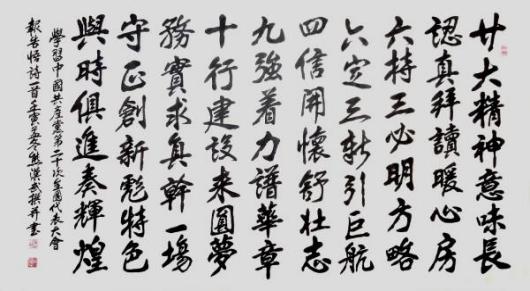 廿大精神意味長
認真拜讀暖心房
六持三必明方略
六定三新引巨航
四信開懷舒壯志
九強着力譜華章
十行建設来圓夢
務實求真幹一場
守正創新彪特色
與時俱進奏輝煌
學習中國共産黨第二十次全國代表大會
報告悟詩一首壬寅孟冬熊漢武撰并書